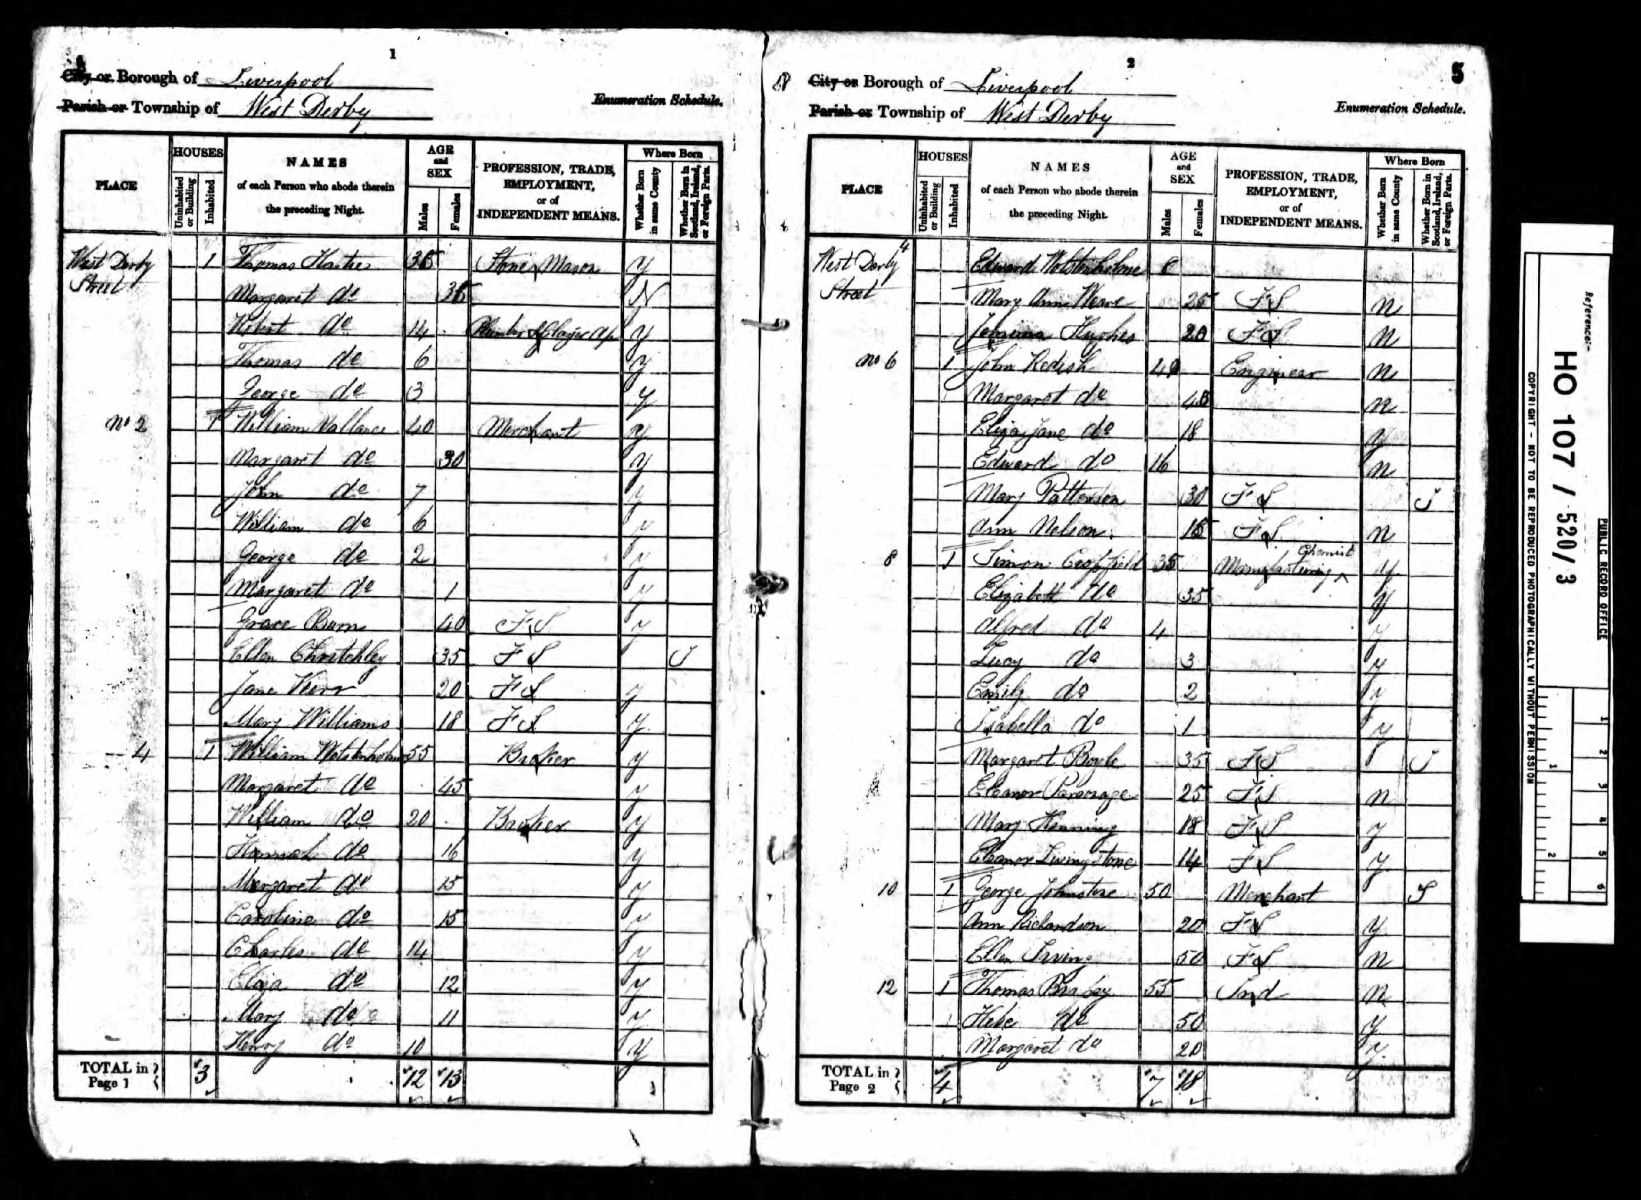 1
City or Borough of Liverpool
Parish or Township of West Derby
Enumeration Schedule.
PLACE
HOUSES
Uninhabited or Building
Inhabited
NAMES
of each Person who abode therein
the preceding Night.
AGE and SEX
Males
Females
PROFESSION, TRADE,
EMPLOYMENT,
or of
INDEPENDENT MEANS.
Where Born
Whether Born in same County
Whether Born in Scotland, Ireland, or Foreign Parts.
West Derby 1 Thomas 35 Stone Mason Y
Street Margaret do 35 N
Robert do 14 Plumber & Glazier Ap Y
Thomas do 6 Y
George do 3 Y
No 2 1 William Vallance 40 Merchant Y
Margaret do 30 Y
John do 7 y
William do 6 y
George do 2 y
Margaret do 1 y
Grace 40 F S y
Ellen Chritchley 35 F S I
Jane Kerr 20 F S y
Mary Williams 18 F S y
4 1 William Wolstenholme 55 Broker y
Margaret do 45 y
William do 20 Broker y
Hannah do 16 y
Margaret do 15 y
Caroline do 15 y
Charles do 14 y
Eliza do 12 y
Mary do 11 y
Henry do 10 y
TOTAL in Page 1 3 12 13
2
5
City or Borough of Liverpool
Parish or Township of West Derby
Enumeration Schedule.
PLACE
HOUSES
Uninhabited or Building
Inhabited
NAMES
of each Person who abode therein
the preceding Night.
AGE and SEX
Males
Females
PROFESSION, TRADE,
EMPLOYMENT,
or of
INDEPENDENT MEANS.
Where Born
Whether Born in same County
Whether Born in Scotland, Ireland, or Foreign Parts.
West Derby 4 Edward Wolstenholme
Street Mary Ann 25 F S n
Jemima Hughes 20 F S n
No 6 1 John Redish 40 Engineer n
Margaret do 40 n
Eliza Jane do 18 y
Edward do 16 n
Mary Patterson 30 F S I
Ann Nelson 15 F S n
8 1 Simon 35 Manufacturing Chemist y
Elizabeth do 35 y
Alfred do 4 y
Lucy do 3 y
Emily do 2 y
Isabella do 1 y
Margaret Boyle 35 F S I
Eleanor Parsonage 25 F S n
Mary Henning 18 F S y
Eleanor Livingstone 14 F S y
10 1 George Johnstone 50 Merchant S
Ann Richardson 20 F S y
Ellen Irving 50 F S n
12 1 Thomas 55 Ind n
do 50 y
Margaret do 20 y
TOTAL in Page 2 4 7 18
Reference:-
HO 107 / 520/3
PUBLIC RECORD OFFICE
COPYRIGHT - NOT TO BE REPRODUCED PHOTOGRAPHICALLY WITHOUT PERMISSION
1
2
3
4
5
6
1
2